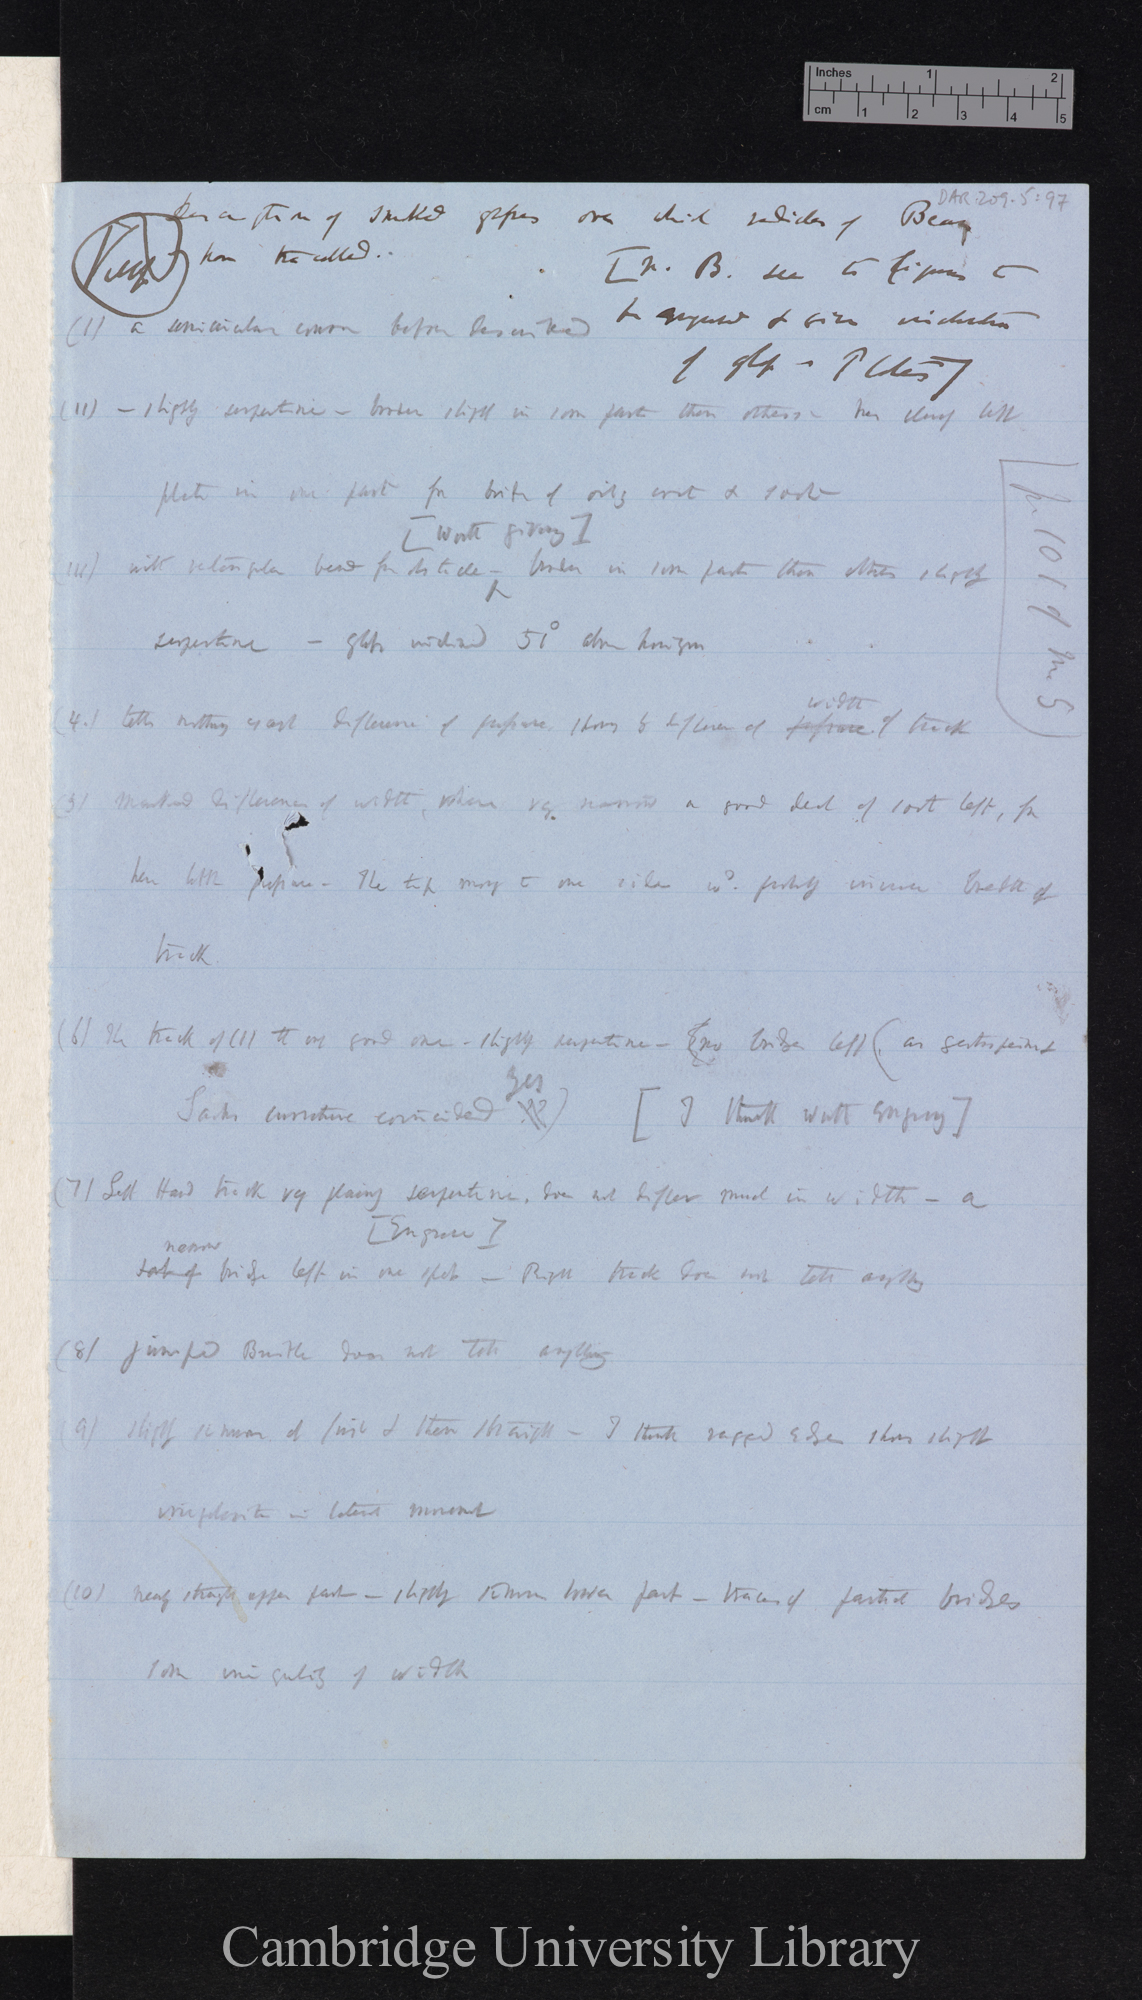 Inches 1 2
cm 1 2 3 4 5
DAR.209.5:97
Description of smoked glasses over which radicles of Bean
have travelled..
[N. B. see to figures to
be engraved & give inclination
of glass
(1) a semicircular course before described
(11) – slightly serpentine – broader slightly in some parts than others – has clearly left
plate in one part for bits of oily crust & soot
[Worth giving]
(111) with rectangular bend for obstacle – broader in some parts than others slightly
serpentine – glass inclined 51° above horizon
(4.) tells nothing except difference of pressure, shows by difference of width of track
(5) Marked difference of width, where very narrow a good deal of soot left, for
here little pressure – The tip moving to one side wd. probably increase breadth of
track
(6) The track of (1) the only good one – slightly serpentine – no bridge left (as geotropism &
Sachs curvature coincided yes)
[I think worth Engraving]
(7) Left Hand track very plainly serpentine, does not differ much in width – a
[Engrave]
narrow bridge left in one spot – Right track does not tell anything
(8) jumped Bristle does not tell anything
(9) slightly sinuous at first & then straight – I think ragged edges show slight
irregularity in lateral movement
(10) nearly straight upper part – slightly sinuous lower part – traces of partial bridges
some irregularity of width
Cambridge University Library